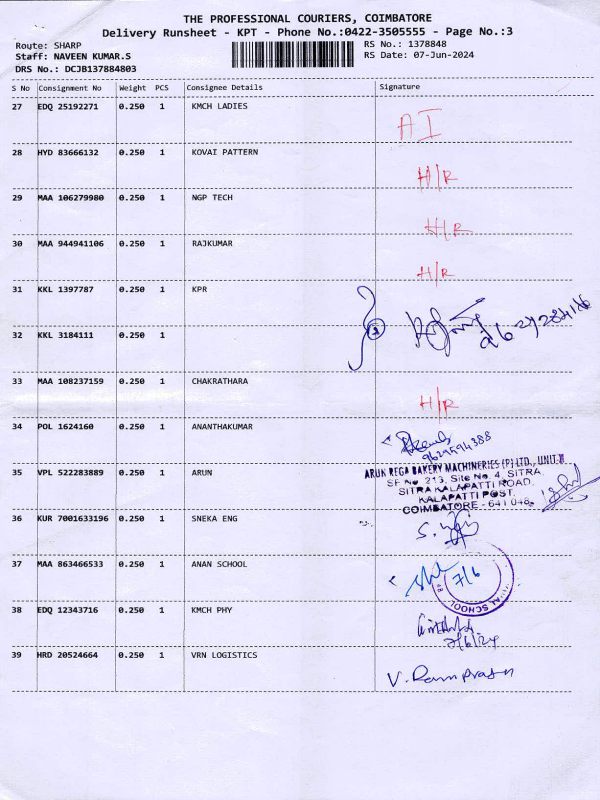 THE PROFESSIONAL COURIERS, COIMBATORE
Delivery Runsheet - KPT - Phone No.:0422-3505555 - Page No.:3
Route: SHARP RS No.: 1378848
Staff: NAVEEN KUMAR.S RS Date: 07-Jun-2024
DRS No.: DCJB137884803
S No Consignment No Weight PCS Consignee Details Signature
27 EDQ 25192271 0.250 1 KMCH LADIES
AI
28 HYD 83666132 0.250 1 KOVAI PATTERN
H/R
29 MAA 106279980 0.250 1 NGP TECH
H/R
30 MAA 944941106 0.250 1 RAJKUMAR
H/R
31 KKL 1397787 0.250 1 KPR
32 KKL 3184111 0.250 1
33 MAA 108237159 0.250 1 CHAKRATHARA
H/R
34 POL 1624160 0.250 1 ANANTHAKUMAR
9629594388
35 VPL 522283889 0.250 1 ARUN
ARUN REGA BAKERY MACHINERIES (P) LTD., UNIT-II
SF No 213, Site No 4, SITRA,
SITRA KALAPATTI ROAD,
KALAPATTI POST,
COIMBATORE - 641 048.
36 KUR 7001633196 0.250 1 SNEKA ENG
37 MAA 863466533 0.250 1 ANAN SCHOOL
7/6
AL SCHOOL
38 EDQ 12343716 0.250 1 KMCH PHY
7/6/24
39 HRD 20524664 0.250 1 VRN LOGISTICS
V. Ramprasan